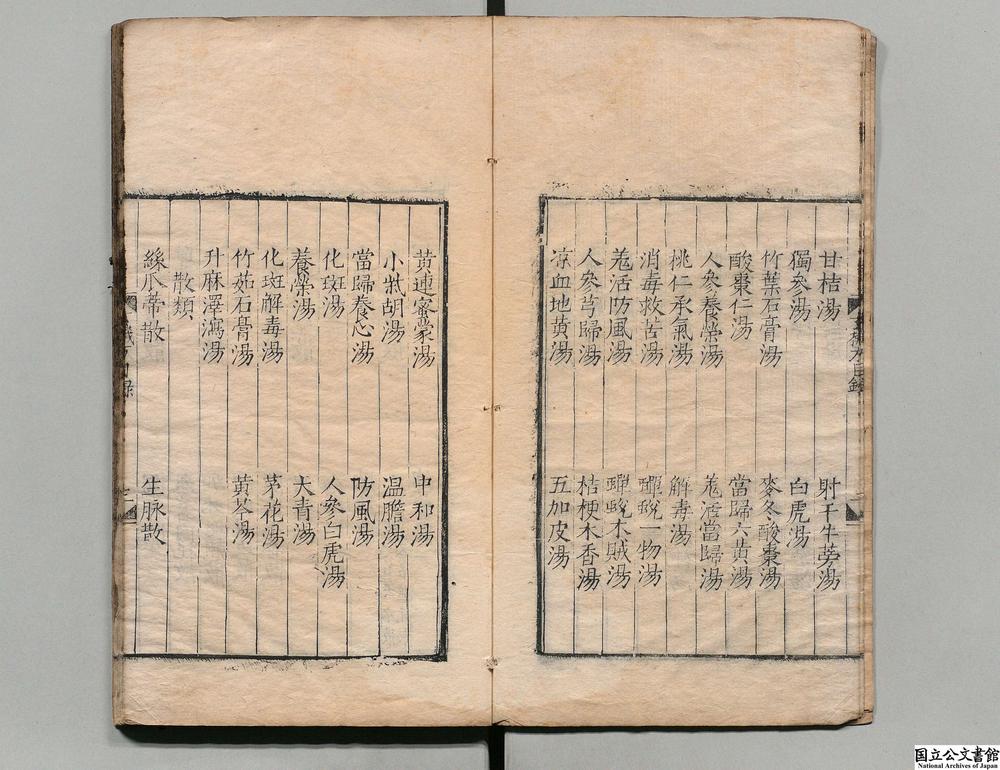 甘桔湯 射干牛蒡湯
獨參湯 白虎湯
竹葉石膏湯 麥冬酸棗湯
酸棗仁湯 當歸六黃湯
人參養榮湯 羗活當歸湯
桃仁承氣湯 解毒湯
消毒救苦湯 蟬蛻一物湯
羗活防風湯 蟬蛻木賊湯
人參芎歸湯 桔梗木香湯
凉血地黃湯 五加皮湯
黃連蜜蒙湯 中和湯
小柴胡湯 温膽湯
當歸養心湯 防風湯
化斑湯 人參白虎湯
養榮湯 大青湯
化斑解毒湯 茅花湯
竹茹石膏湯 黃芩湯
升麻澤瀉湯
散類
絲瓜蒂散 生脉散
国立公文書館
National Archives of Japan